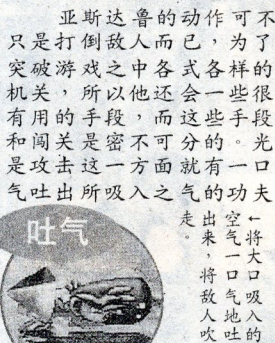 亚斯达鲁的动作可不
只是打倒敌人而已，为了
突破游戏之中各式各样的
机关，所以他还会一些很
有用的手段，而这些手段
和闯关是密不可分的。光
是攻击这一方面就有一口
气吐出所吸入之气的功夫
吐气
←将大口吸入的
空气一口气地吐
出来，将敌人吹
走。